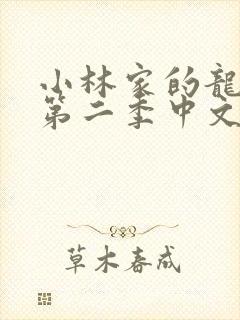 小林家的龍
第二季中文
草木春成